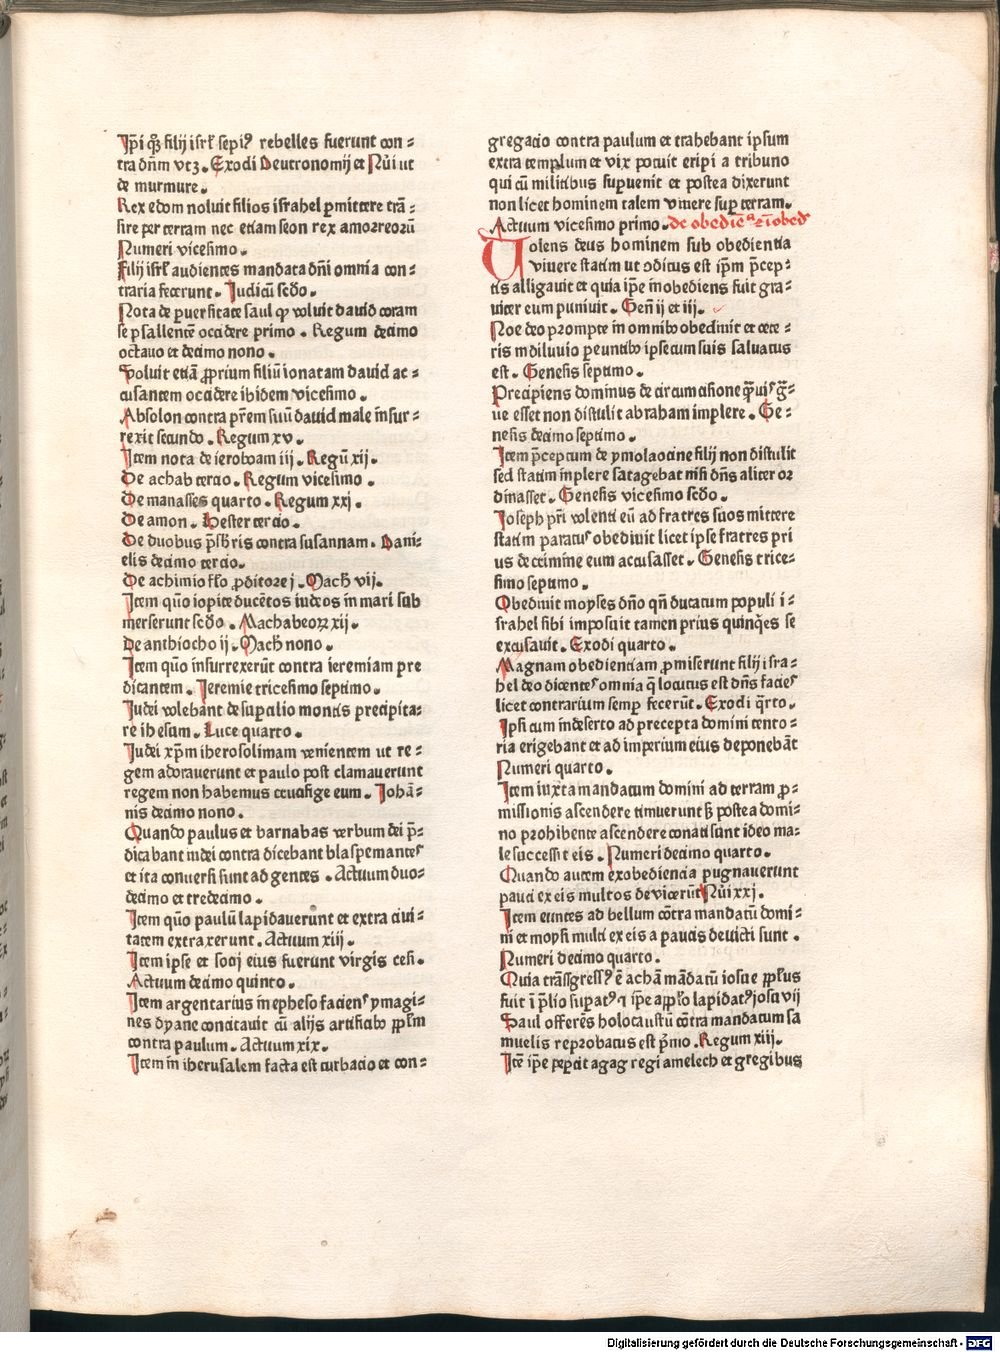 Ip̄i qꝫ filij isrl̄ sepiꝰ rebelles fuerunt con⸗
tra dn̄m vtꝫ. Exodi Deutronomij et Nūi ut
de murmure.
Rex edom noluit filios israhel ꝑmittere trā⸗
sire per terram nec etiam seon rex amorreorū
Numeri vicesimo.
Filij isrl̄ audientes mandata dn̄i omnia con⸗
traria fecerunt. Iudicū scd̄o.
Nota de ꝑuersitate saul qꝫ voluit dauid coram
se psallentē occidere primo. Regum decimo
octauo et decimo nono.
Voluit etiā ꝓprium filiū ionatam dauid ac⸗
cusantem occidere ibidem vicesimo.
Absolon contra pr̄em suū dauid male insur⸗
rexit secundo. Regum xv.
Item nota de ieroboam iij. Regū xij.
De achab tercio. Regum vicesimo.
De manasses quarto. Regum xxj.
De amon. Hester tercio.
De duobus p̄sbr̄is contra susannam. Dani⸗
elis decimo tercio.
De achimio fr̄o ꝓditore j. Mach̄ vij.
Item quō iopite ducētos iudeos in mari sub
merserunt scd̄o. Machabeoꝝ xij.
De anthiocho ij. Mach̄ nono.
Item quō insurrexerūt contra ieremiam pre
dicantem. Ieremie tricesimo septimo.
Iudei volebant de supercilio montis precipita⸗
re ihesum. Luce quarto.
Iudei xp̄m iherosolimam venientem ut re⸗
gem adorauerunt et paulo post clamauerunt
regem non habemus crucifige eum. Iohā⸗
nis decimo nono.
Quando paulus et barnabas verbum dei p̄⸗
dicabant iudei contra dicebant blaspemantes
et ita conuersi sunt ad gentes. Actuum duo⸗
decimo et tredecimo.
Item quō paulū lapidauerunt et extra ciui⸗
tatem extraxerunt. Actuum xiij.
Item ipse et socij eius fuerunt virgis cesi.
Actuum decimo quinto.
Item argentarius in epheso faciens ymagi⸗
nes dyane concitauit cū alijs artificibꝰ ppl̄m
contra paulum. Actuum xix.
Item in iherusalem facta est turbacio et con⸗
gregacio contra paulum et trahebant ipsum
extra templum et vix potuit eripi a tribuno
qui cū militibus supuenit et postea dixerunt
non licet hominem talem viuere suꝑ terram.
Actuum vicesimo primo. de obediēᵃ ⁊ īobed
Uolens deus hominem sub obedientia
viuere statim ut ↄditus est ip̄m p̄cep⸗
tis alligauit et quia ip̄e inobediens fuit gra⸗
uiter eum puniuit. Gen̄ ij et iij.
Noe deo prompte in omnibꝰ obediuit et cete⸗
ris in diluuio pereuntibꝰ ipse cum suis saluatus
est. Genesis septimo.
Precipiens dominus de circumcisione q̄̄uis gͣ⸗
ue esset non distulit abraham implere. Ge⸗
nesis decimo septimo.
Item p̄ceptum de ymolacione filij non distulit
sed statim inplere satagebat nisi dn̄s aliter or
dinasset. Genesis vicesimo scd̄o.
Ioseph pr̄i volenti eū ad fratres suos mittere
statim paratus obediuit licet ipse fratres pri
us de crimine eum accusasset. Genesis trice⸗
simo septimo.
Obediuit moyses dn̄o qn̄ ducatum populi i⸗
srahel sibi imposuit tamen prius quinq̄es se
excusauit. Exodi quarto.
Magnam obedientiam ꝓmiserunt filij isra⸗
hel deo dicentes omnia q̄ locutus est dn̄s facies
licet contrarium semꝑ fecerūt. Exodi q̄rto.
Ipsi cum in deserto ad precepta domini tento⸗
ria erigebant et ad imperium eius deponebāt
Numeri quarto.
Item iuxta mandatum domini ad terram ꝓ⸗
missionis ascendere timuerunt ꝫ postea domi⸗
no prohibente ascendere conati sunt ideo ma⸗
le successit eis. Numeri decimo quarto.
Quando autem ex obediencia pugnauerunt
pauci ex eis multos deuicerūt Nūi xxj.
Item euntes ad bellum cōtra mandatū domi⸗
ni et moysi multi ex eis a paucis deuicti sunt.
Numeri decimo quarto.
Quia trāsgressꝰ ē acham mādatū iosue ppl̄us
fuit ī p̄lio suꝑatꝰ ⁊ ip̄e a ppl̄o lapidatꝰ iosu vij
Saul offerēs holocaustū cōtra mandatum sa
muelis reprobatus est p̄mo. Regum xiij.
Itē ip̄e peꝑcit agag regi amelech et gregibus
Digitalisierung gefördert durch die Deutsche Forschungsgemeinschaft - DFG